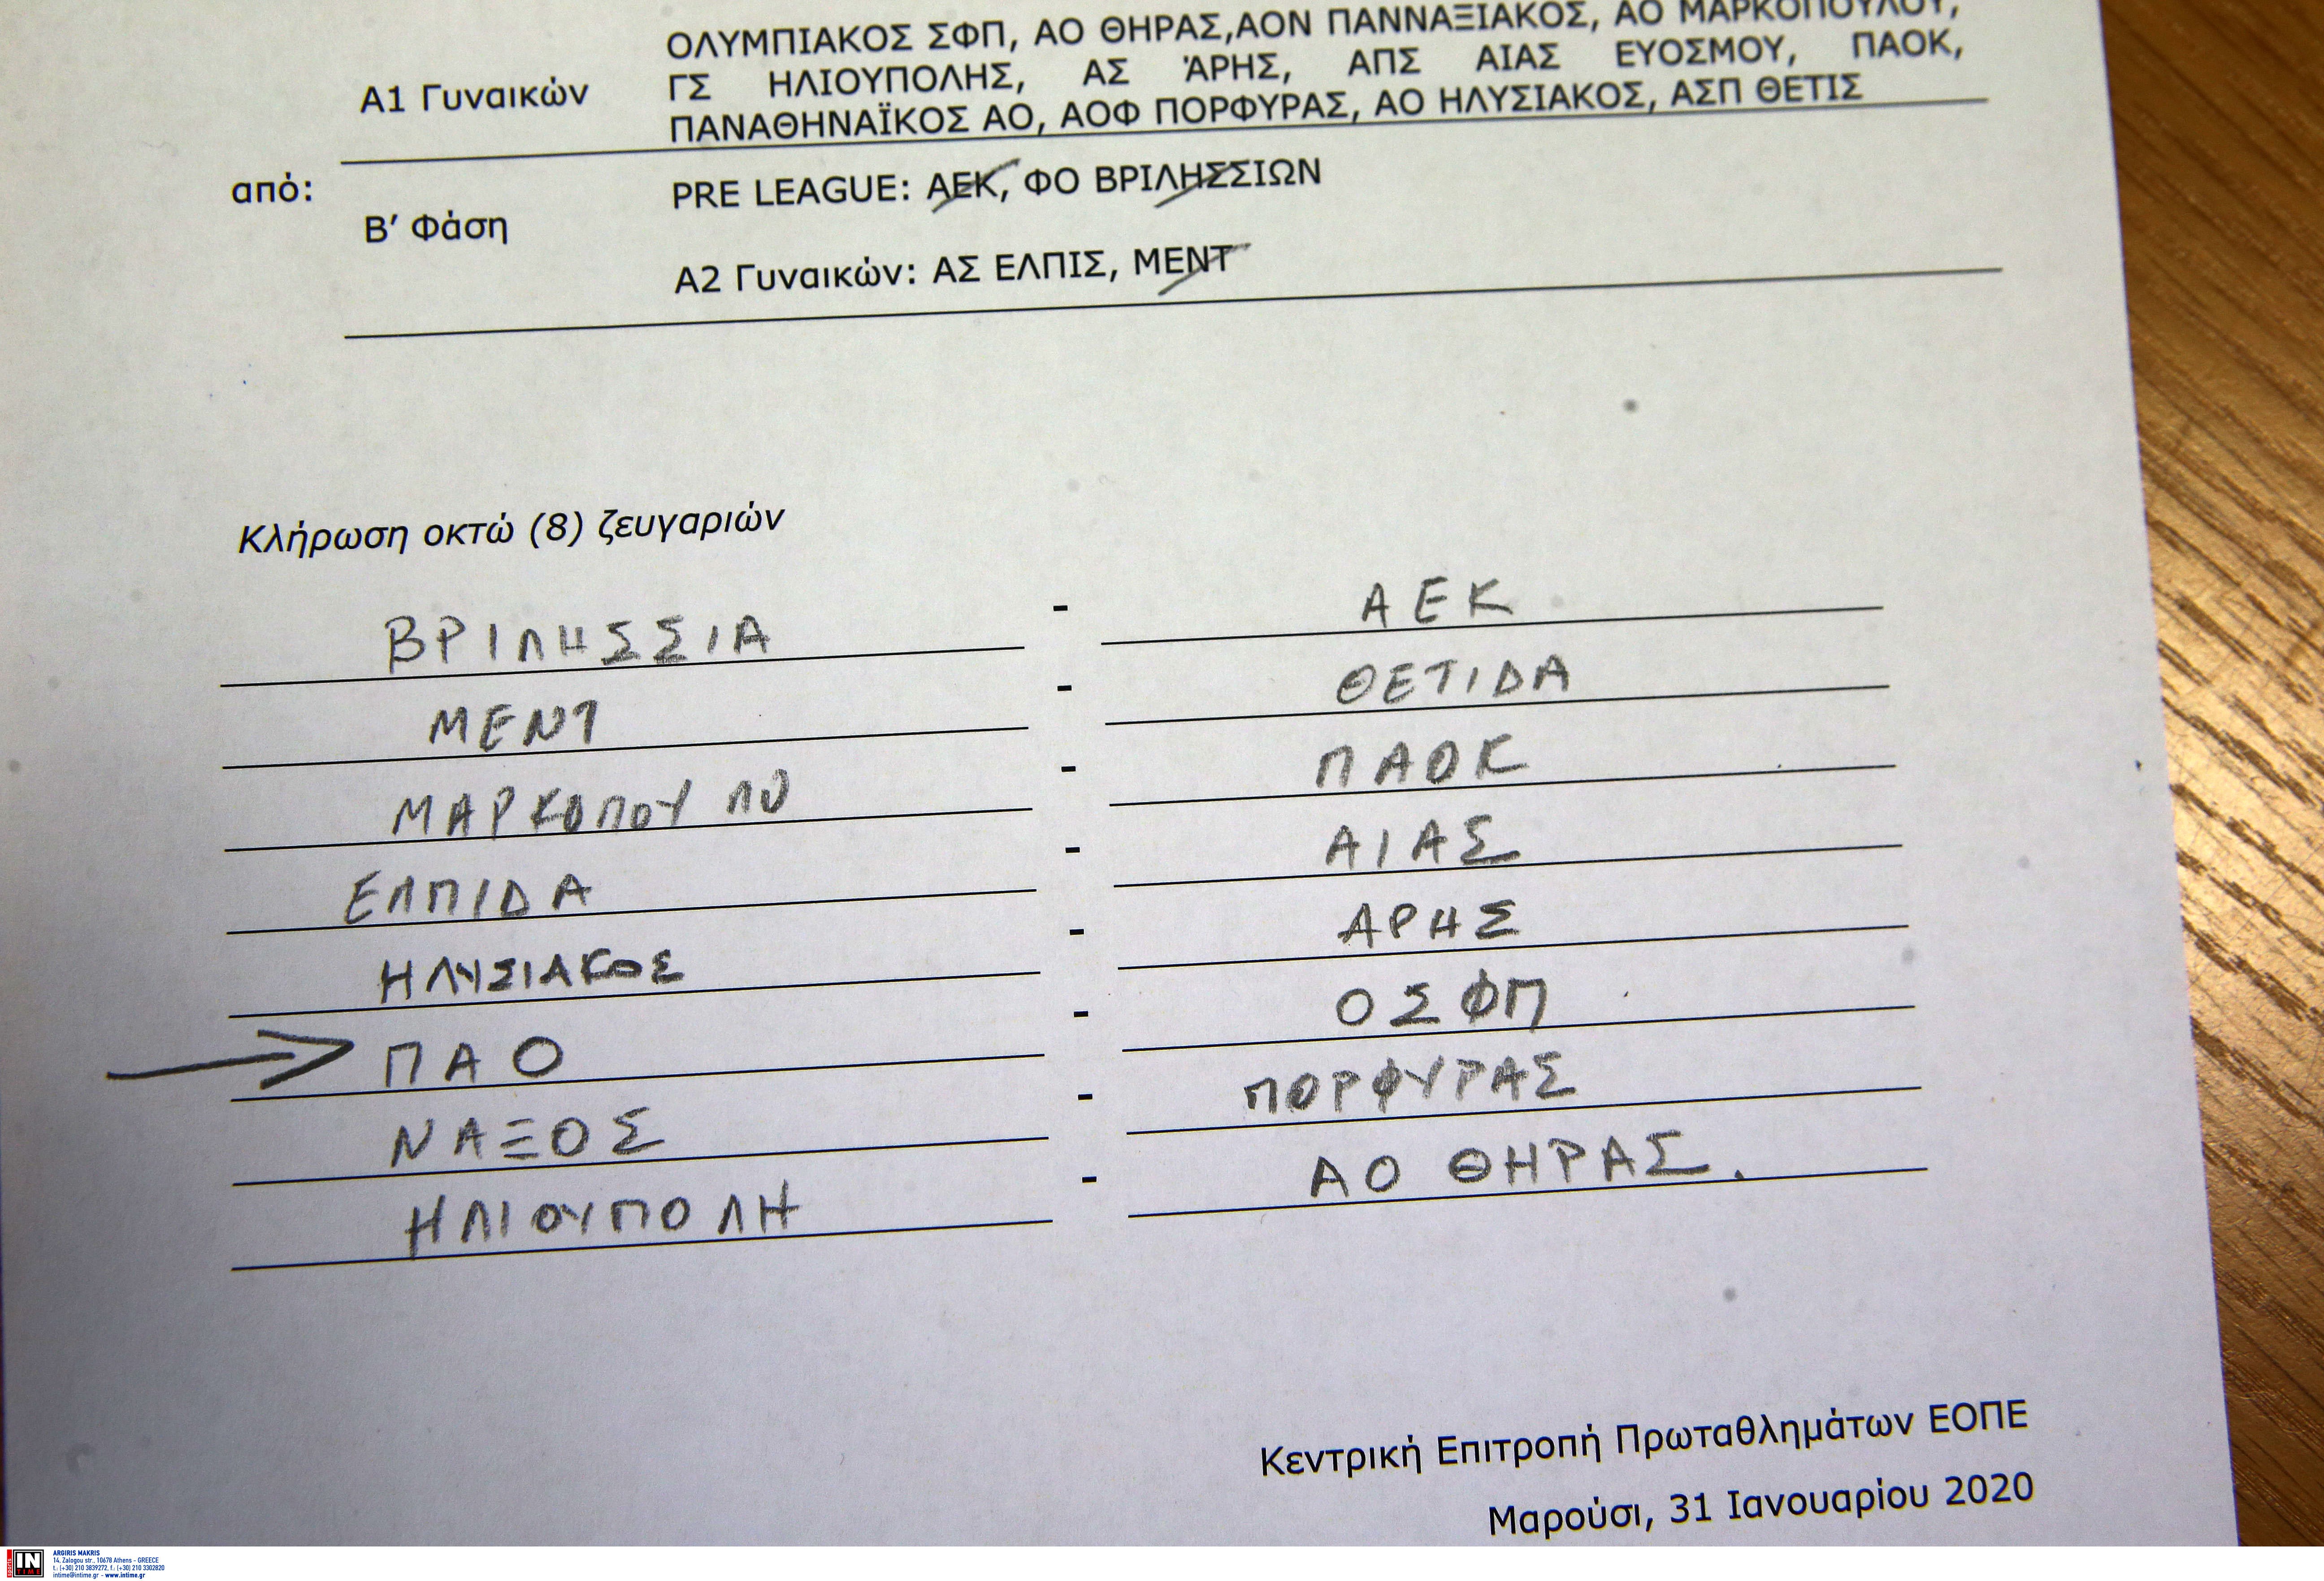 ΟΛΥΜΠΙΑΚΟΣ ΣΦΠ, ΑΟ ΘΗΡΑΣ,ΑΟΝ ΠΑΝΝΑΞΙΑΚΟΣ, ΑΟ ΜΑΡΚΟΠΟΥΛΟΥ,
Α1 Γυναικών ΓΣ ΗΛΙΟΥΠΟΛΗΣ, ΑΣ ΆΡΗΣ, ΑΠΣ ΑΙΑΣ ΕΥΟΣΜΟΥ, ΠΑΟΚ,
ΠΑΝΑΘΗΝΑΪΚΟΣ ΑΟ, ΑΟΦ ΠΟΡΦΥΡΑΣ, ΑΟ ΗΛΥΣΙΑΚΟΣ, ΑΣΠ ΘΕΤΙΣ
από:
PRE LEAGUE: ΑΕΚ, ΦΟ ΒΡΙΛΗΣΣΙΩΝ
Β’ Φάση
Α2 Γυναικών: ΑΣ ΕΛΠΙΣ, ΜΕΝΤ
Κλήρωση οκτώ (8) ζευγαριών
ΒΡΙΛΗΣΣΙΑ - ΑΕΚ
ΜΕΝΤ - ΘΕΤΙΔΑ
ΜΑΡΚΟΠΟΥΛΟ - ΠΑΟΚ
ΕΛΠΙΔΑ - ΑΙΑΣ
ΗΛΥΣΙΑΚΟΣ - ΑΡΗΣ
ΠΑΟ - ΟΣΦΠ
ΝΑΞΟΣ - ΠΟΡΦΥΡΑΣ
ΗΛΙΟΥΠΟΛΗ - ΑΟ ΘΗΡΑΣ.
Κεντρική Επιτροπή Πρωταθλημάτων ΕΟΠΕ
Μαρούσι, 31 Ιανουαρίου 2020
IN TIME
ARGIRIS MAKRIS
14, Zalogou str., 10678 Athens - GREECE
t.: (+30) 210 3839272, f.: (+30) 210 3302820
intime@intime.gr - www.intime.gr